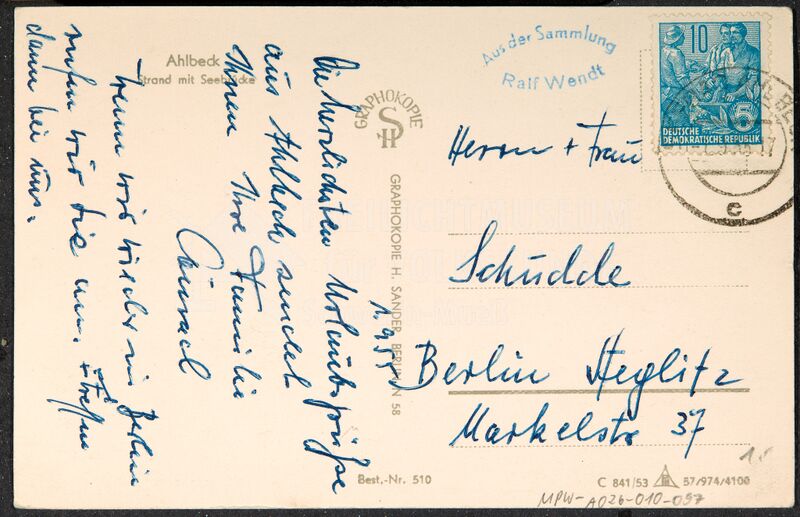 Ahlbeck
Strand mit Seebrücke
Die herzlichsten Urlaubsgrüße
aus Ahlbeck sendet
Ihnen Ihre Familie
Wenn wir wieder in Berlin
rufen wir Sie an. Treffen
dann bei uns.
GRAPHOKOPIE
SH
GRAPHOKOPIE H. SANDER, BERLIN N 58
Best.-Nr. 510
Aus der Sammlung
Ralf Wendt
10
5
DEUTSCHE
DEMOKRATISCHE REPUBLIK
c
Herrn + Frau
Schudde
Berlin Steglitz
Markelstr 37
C 841/53 57/974/4100
MPW-A026-010-097